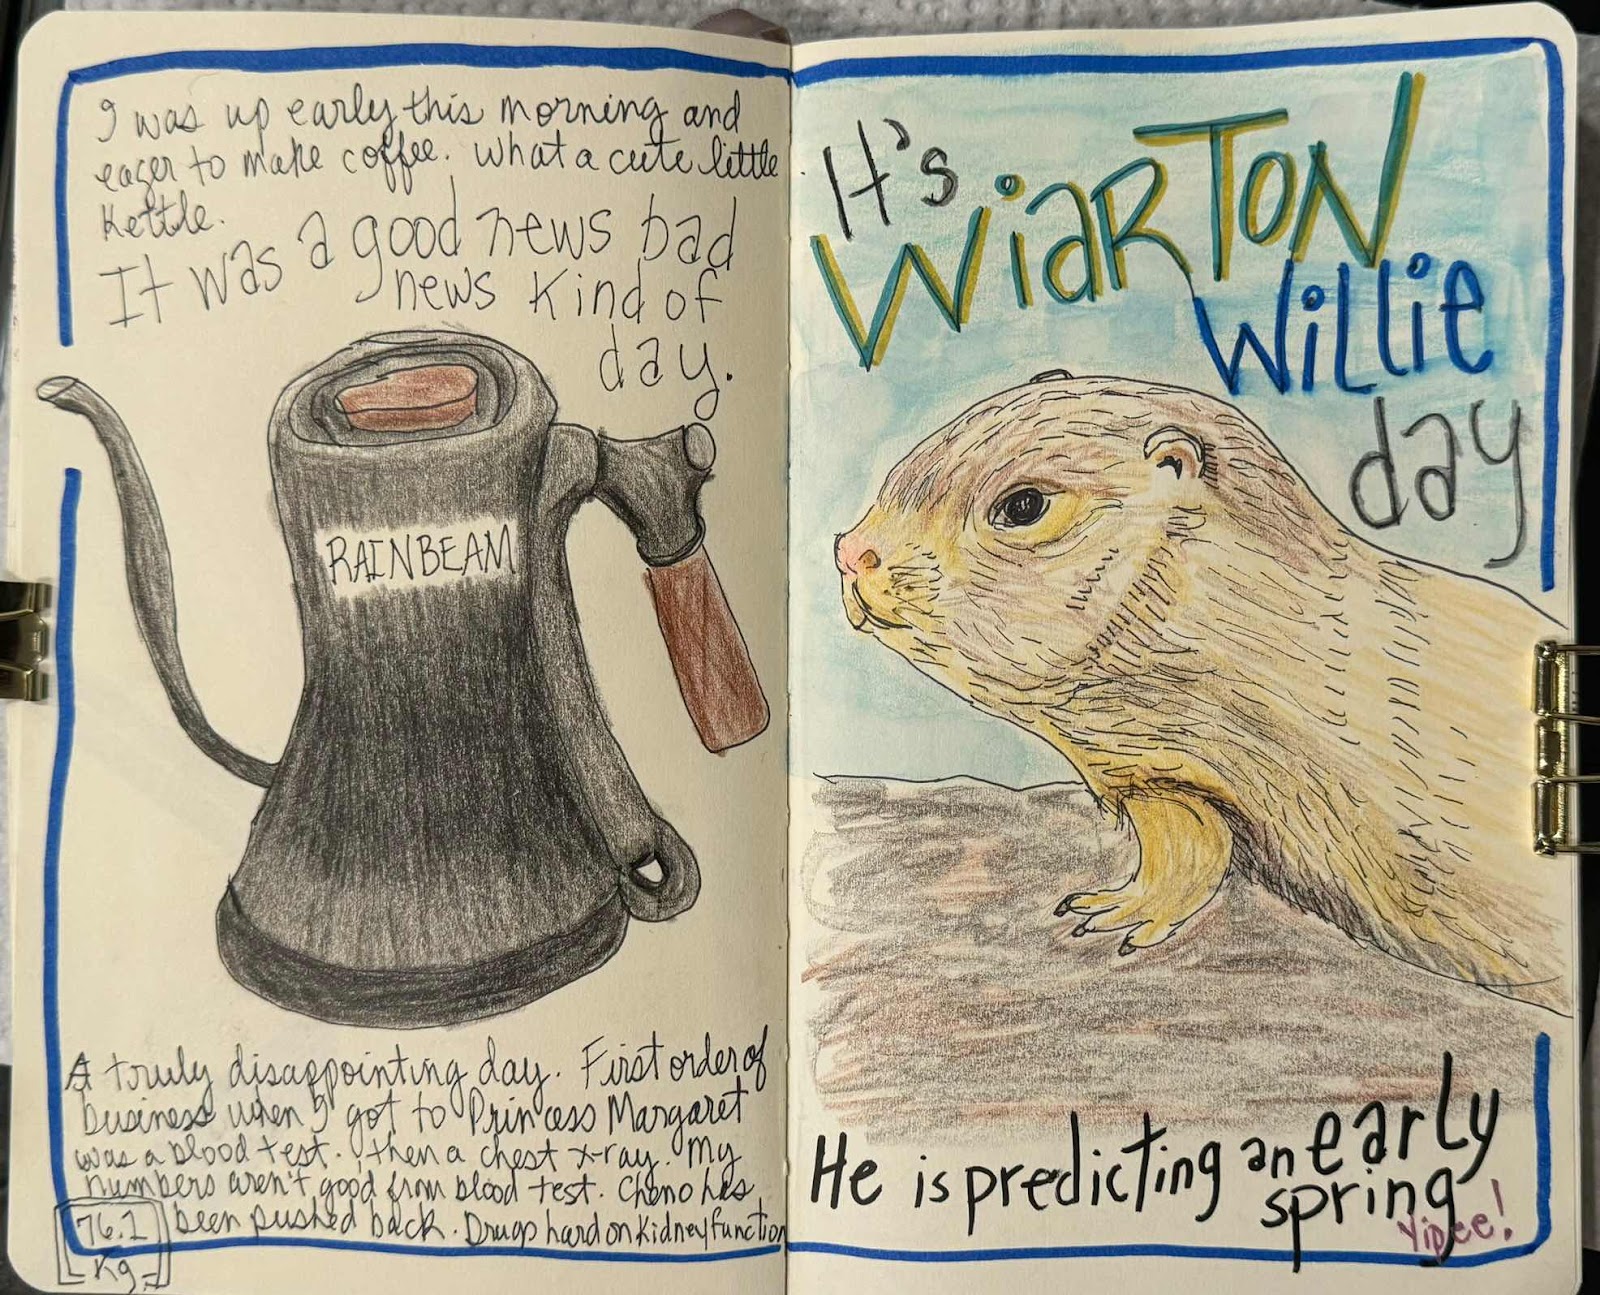 I was up early this morning and
eager to make coffee. What a cute little
Kettle.
It was a good news bad
news kind of
day.
RAINBEAM
A truly disappointing day. First order of
business when I got to Princess Margaret
was a blood test. then a chest x-ray. My
numbers aren't good from blood test. Chemo has
been pushed back. Drugs hard on kidney function
76.1
Kg
It's
WIARTON
Willie
day
He is predicting an early
spring
Yipee!